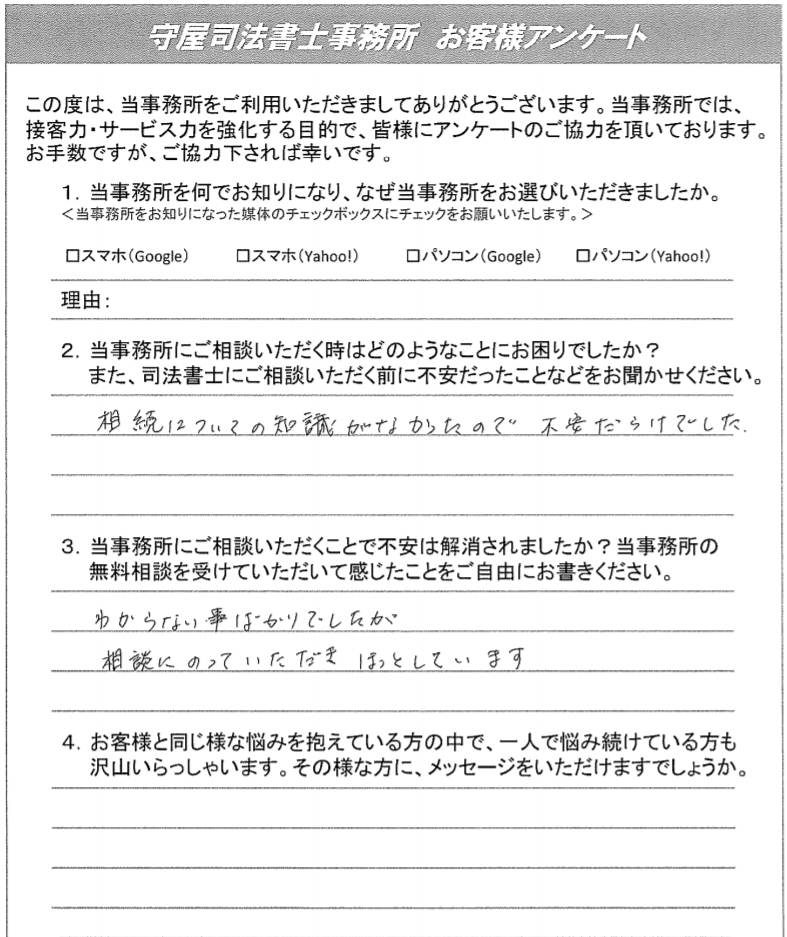 守屋司法書士事務所 お客様アンケート
この度は、当事務所をご利用いただきましてありがとうございます。当事務所では、
接客力・サービス力を強化する目的で、皆様にアンケートのご協力を頂いております。
お手数ですが、ご協力下されば幸いです。
1．当事務所を何でお知りになり、なぜ当事務所をお選びいただきましたか。
＜当事務所をお知りになった媒体のチェックボックスにチェックをお願いいたします。＞
□スマホ(Google) □スマホ(Yahoo!) □パソコン(Google) □パソコン(Yahoo!)
理由：
2．当事務所にご相談いただく時はどのようなことにお困りでしたか？
また、司法書士にご相談いただく前に不安だったことなどをお聞かせください。
相続についての知識がなかったので 不安だらけでした.
3．当事務所にご相談いただくことで不安は解消されましたか？当事務所の
無料相談を受けていただいて感じたことをご自由にお書きください。
わからない事ばかりでしたが
相談にのっていただき ほっとしています
4．お客様と同じ様な悩みを抱えている方の中で、一人で悩み続けている方も
沢山いらっしゃいます。その様な方に、メッセージをいただけますでしょうか。